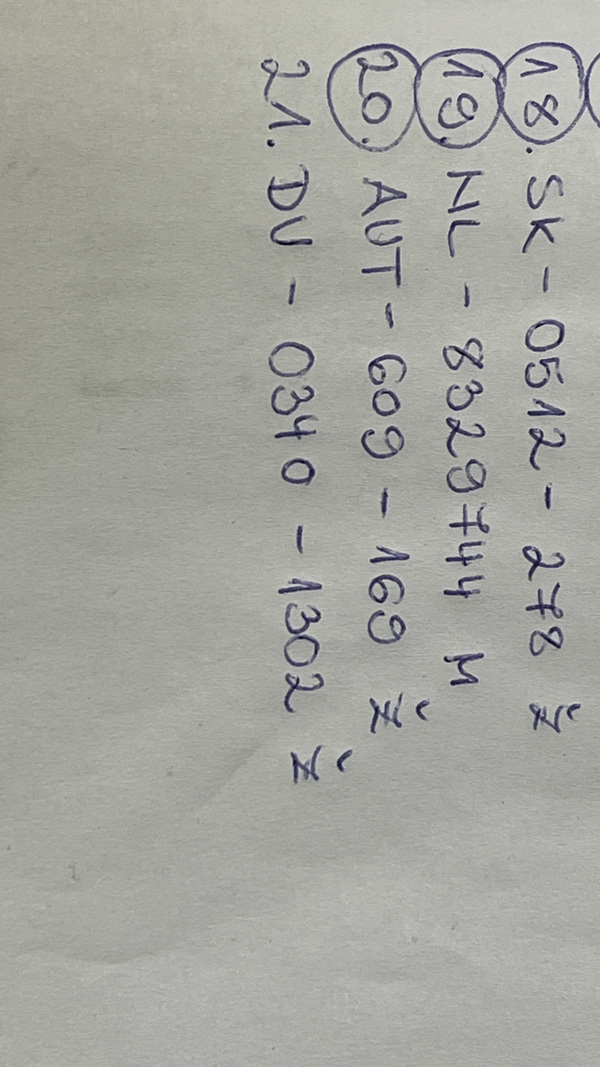 18. SK - 0512 - 278 Ž
19. NL - 8329744 M
20. AUT - 609 - 169 Ž
21. DV - 0340 - 1302 Ž